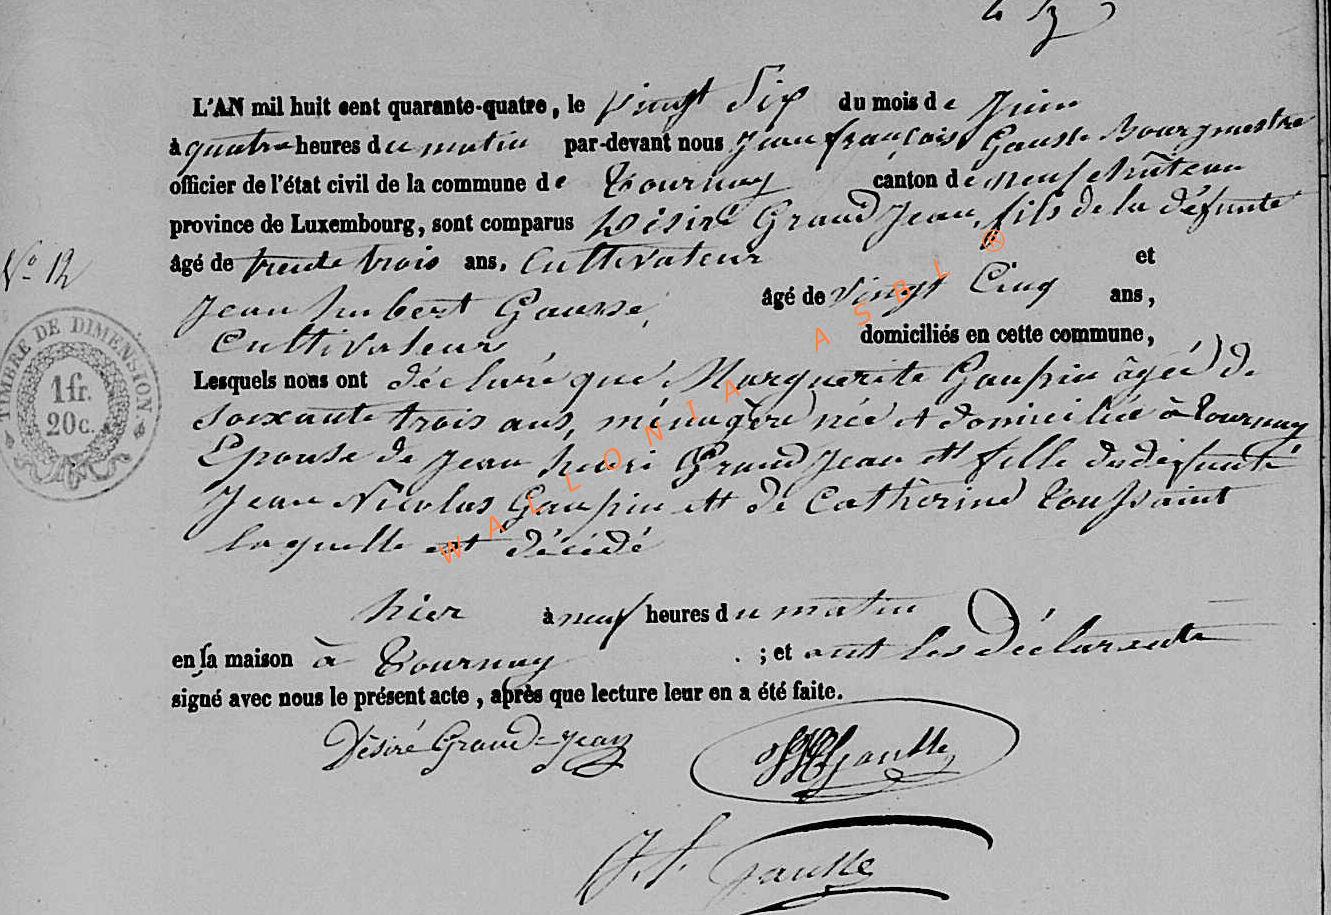 L'AN mil huit cent quarante-quatre, le vingt Six du mois de Juin
à quatre heures du matin par-devant nous Jean françois Gausse Bourgmestre
officier de l'état civil de la commune de Tournay canton de neufchâteau
province de Luxembourg, sont comparus Désiré Grand Jean, fils de la défunte
âgé de trente trois ans, Cultivateur et
Jean hubert Gausse, âgé de vingt Cinq ans,
Cultivateur, domiciliés en cette commune,
N.º 12
Lesquels nous ont déclaré que Marguerite Gaupin âgée de
soixante trois ans, ménagère née et domiciliée à Tournay
Epouse de Jean henri Grand Jean et fille de défunts
Jean Nicolas Gaupin et de Catherine Toussaint
laquelle est décédé
TIMBRE DE DIMENSION.
1 fr.
20 c.
hier à neuf heures du matin
en sa maison à Tournay ; et ont les Déclarants
signé avec nous le présent acte, après que lecture leur en a été faite.
Désiré Grand=Jean
JH Gausse
J. f. Gausse
WALLONIA ASBL ®